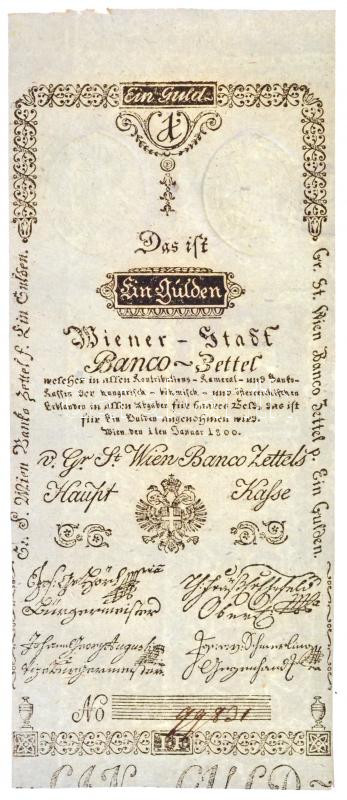 Ein Guld.
1
Das ist
Ein Gulden
Wiener - Stadt
Banco ~ Zettel
welcher in allen Kontributions - Kameral - und Banko-
Kassen der hungarisch - böhmisch - und österreichischen
Erblanden in allen Abgaben für baares Geld, das ist
für Ein Gulden angenohmen wird.
Wien, den 1 len Januar 1800.
v. Gr St. Wien Banco Zettels
Haupt Kasse
Gr. S. Wien Banko Zettel f. Ein Gulden.
Gr. St. Wien Banco Zettel p. Ein Gulden.
Bürgermeister
Johann Georg Augusti
Vizebürgermeister
No 99831